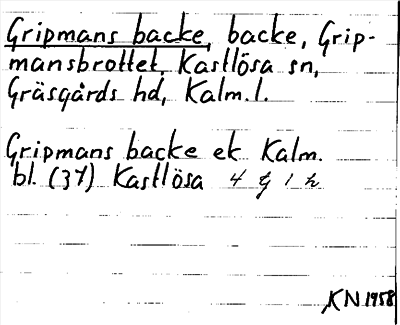 Gripmans backe, backe, Grip-
mansbrottet, Kastlösa sn,
Gräsgårds hd, Kalm. l.
Gripmans backe ek Kalm.
bl. (37) Kastlösa 4 G 1 h
KN 1958